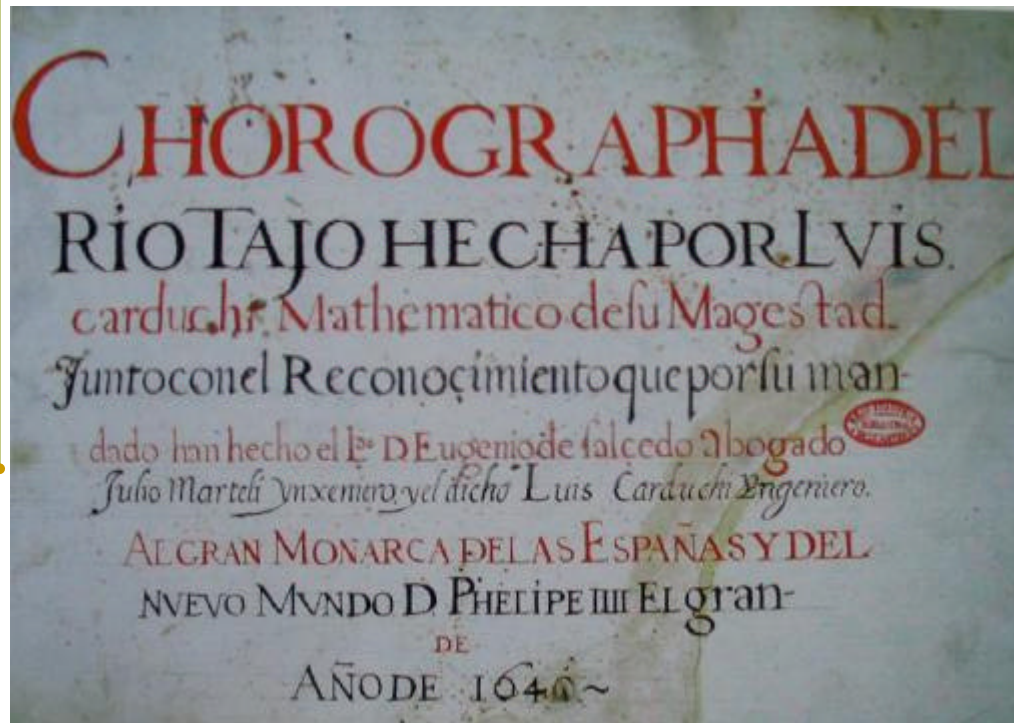 CHOROGRAPHIA DEL
RIO TAJO HECHA POR LVIS.
carduchi Mathematico de ſu Magestad.
Junto con el Reconoçimiento que por ſu man-
dado han hecho el Lᵈᵒ D Eugenio de ſalcedo Abogado
Julio Marteli Ynxeniero, y el dicho Luis Carduchi Yngeniero.
AL GRAN MONARCA DE LAS ESPAÑAS Y DEL
NVEVO MVNDO D. PHELIPE IIII EL gran-
DE
AÑO DE 164 ~